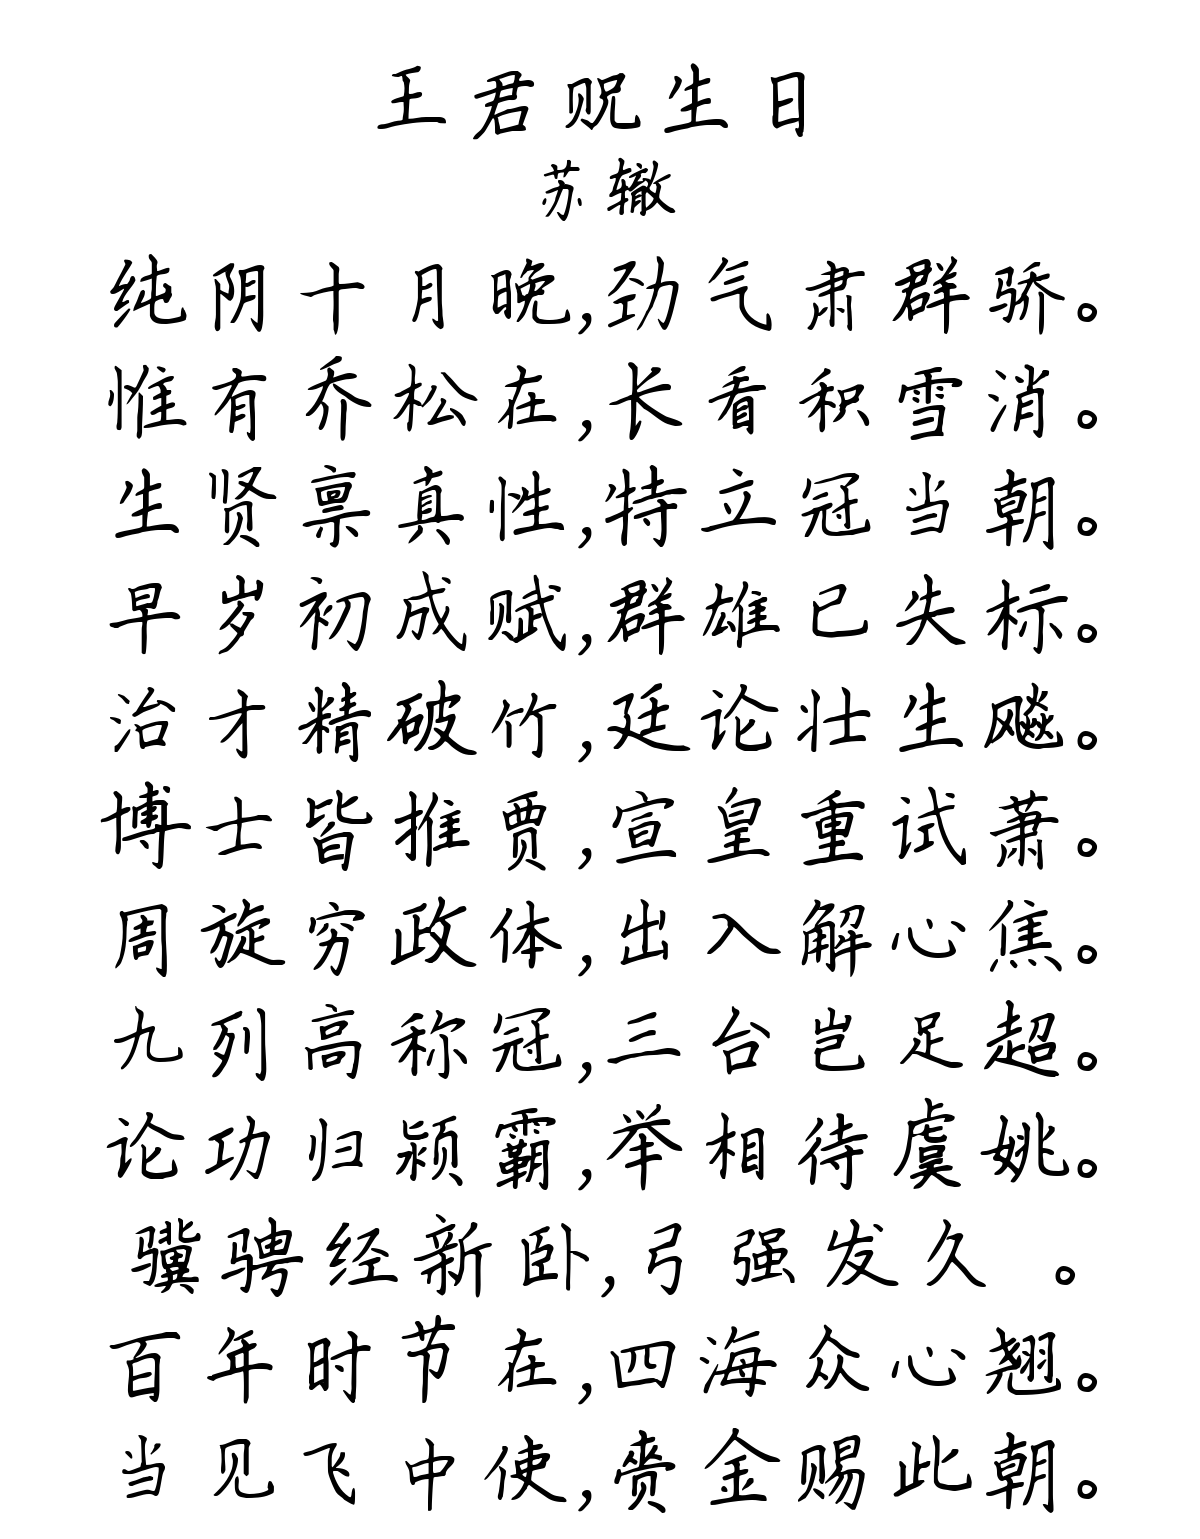 王君贶生日
苏辙
纯阴十月晚,劲气肃群骄。
惟有乔松在,长看积雪消。
生贤禀真性,特立冠当朝。
早岁初成赋,群雄已失标。
治才精破竹,廷论壮生飚。
博士皆推贾,宣皇重试萧。
周旋穷政体,出入解心焦。
九列高称冠,三台岂足超。
论功归颍霸,举相待虞姚。
骥骋经新卧,弓强发久 。
百年时节在,四海众心翘。
当见飞中使,赉金赐此朝。